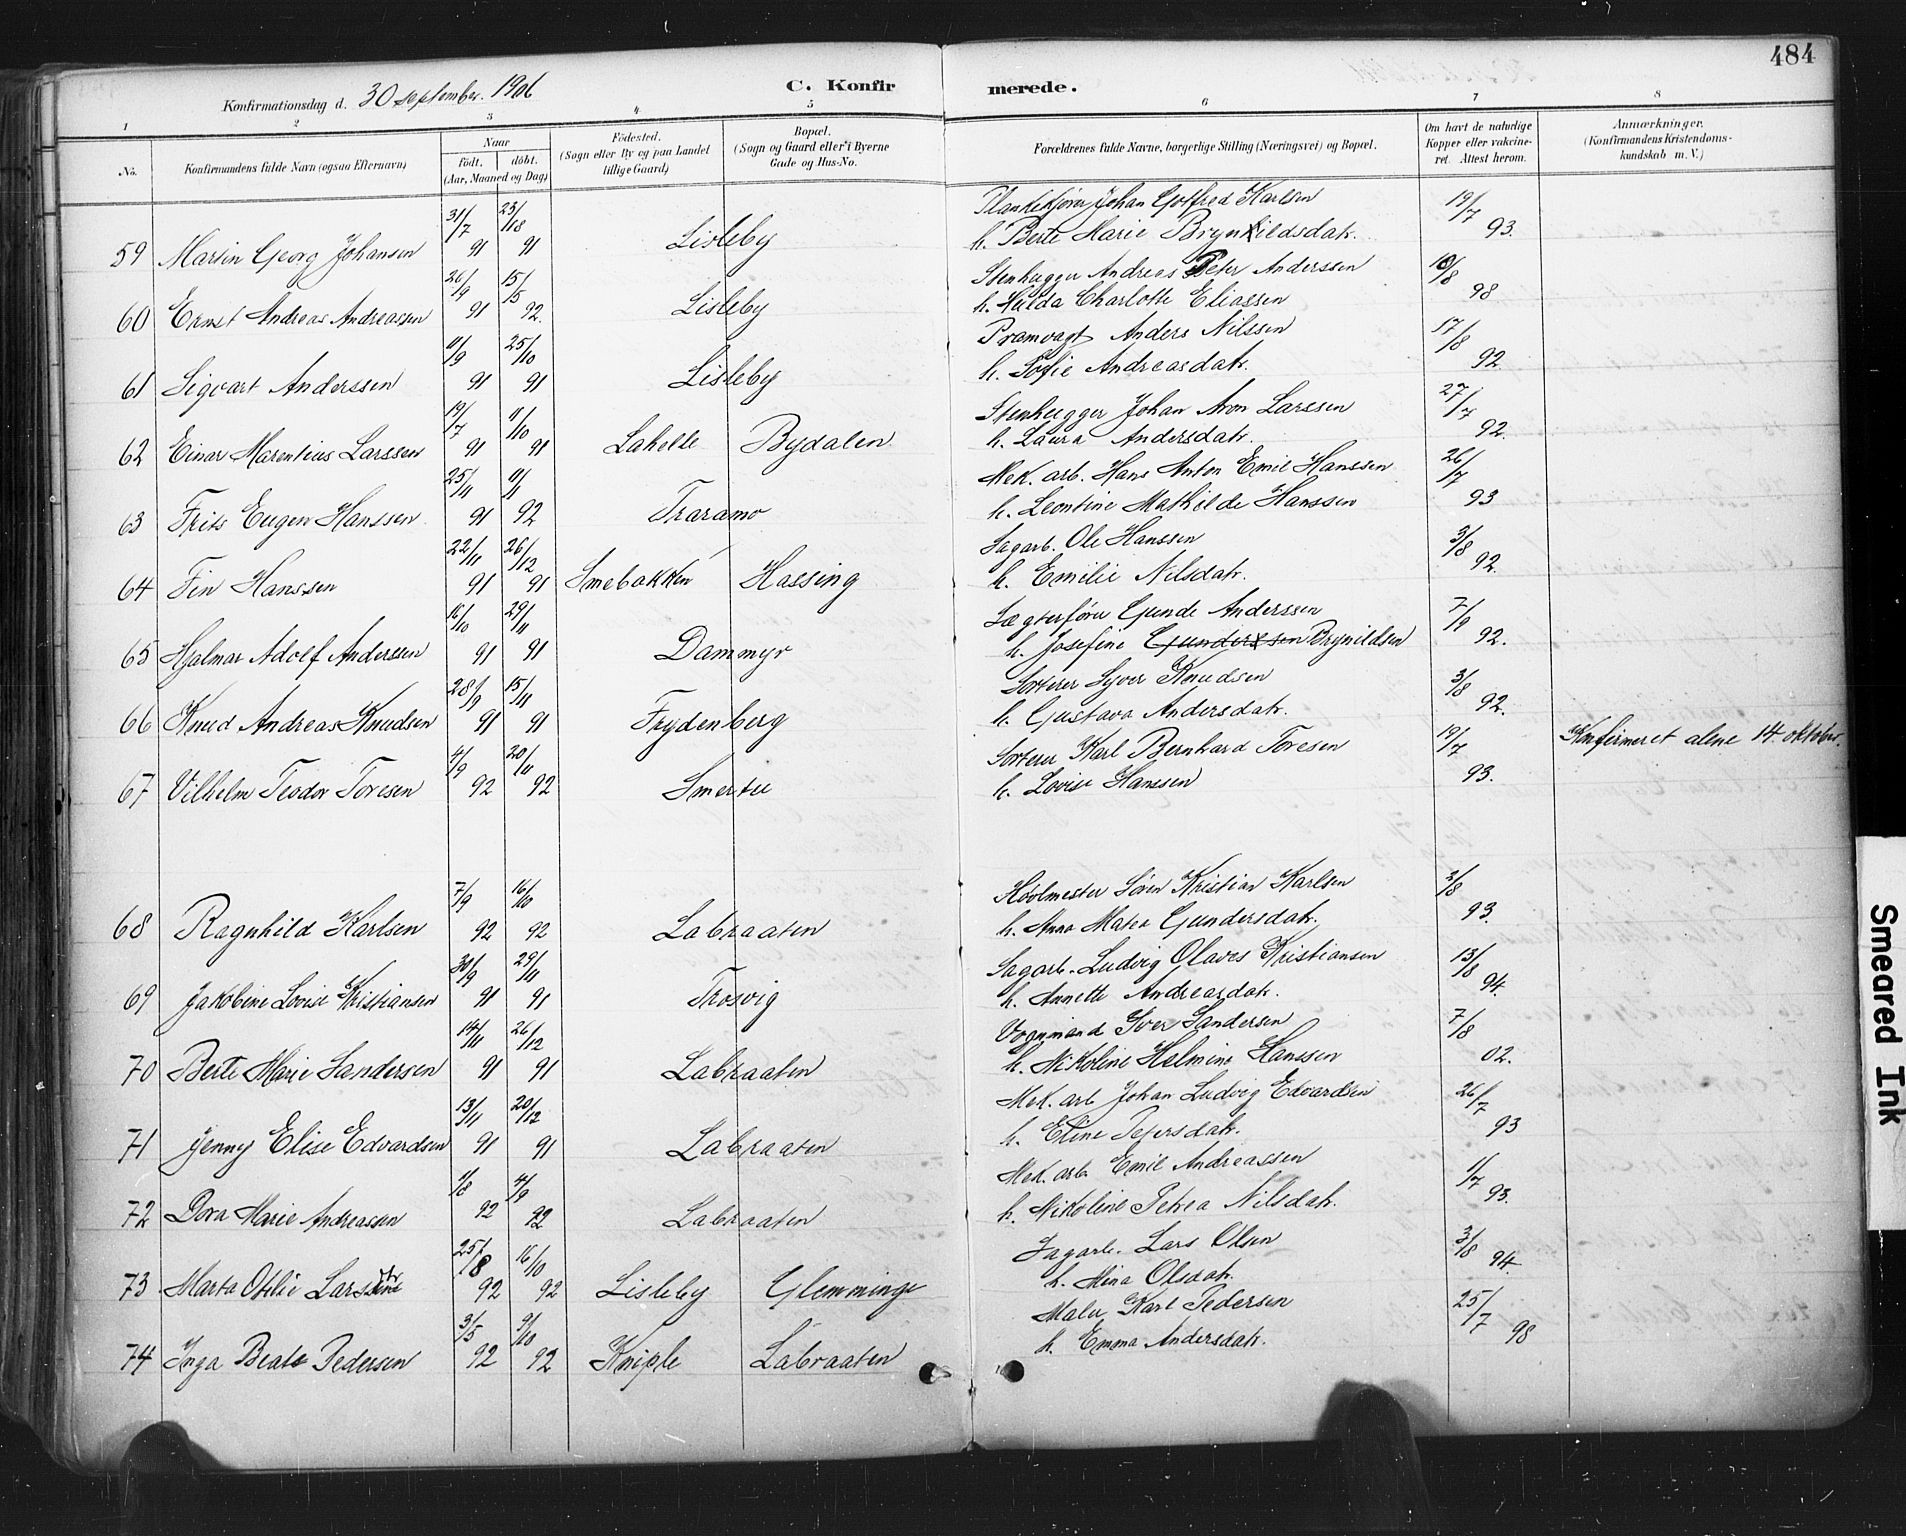 484
Konfirmationsdag d. 30 september 1906
C. Konfirmerede.
1 2 3 4 5 6 7 8
No. Konfirmandens fulde Navn (ogsaa Efternavn) Naar födt. döbt. (Aar, Maaned og Dag) Födested. (Sogn eller By og paa Landet tillige Gaard) Bopæl. (Sogn og Gaard eller i Byerne Gade og Hus-No. Forældrenes fulde Navne, borgerlige Stilling (Næringsvei) og Bopæl. Om havt de naturlige Kopper eller vakcineret. Attest herom. Anmærkninger. (Konfirmandens Kristendomskundskab m. V.)
59 Martin Georg Johansen 31/7 91 91 Lisleby Plankekjører Johan Gotfred Karlsen 19/7 93.
h. Berte Marie Brynhildsdatr.
60 Ernst Andreas Andreassen 26/9 91 15/5 92. Lisleby Stenhugger Andreas Peter Anderssen 98
h. Hulda Charlotte Eliassen
61 Sigvart Anderssen 11/9 91 25/10 91 Lisleby Pramvagt Anders Nilssen 17/8 92
h. Sofie Andreasdatr.
62 Einar Marentius Larssen 19/7 91 11/10 91 Lahelle Bydalen Stenhugger Johan Aron Larssen 27/7 92.
h. Laura Andersdatr.
63 Frits Eugen Hanssen 25/11 91 92 Traramo Mek. arb. Hans Anton Emil Hanssen 26/7 93
h. Leontine Mathilde Hanssen
64 Fin Hanssen 22/11 91 26/12 91 Smebakken Hassing Sagarb. Ole Hanssen 3/8 92.
h. Emilie Nilsdatr.
65 Hjalmar Adolf Anderssen 16/10 91 29/11 91 Dammyr Lægterfører Gunde Anderssen 7/9 92.
h. Josefine Gunderssen Brynildsen
66 Knud Andreas Knudsen 28/9 91 15/11 91 Frydenberg Sorterer Syver Knudsen 3/8 92.
h. Gustava Andersdatr.
67 Vilhelm Teodor Toresen 4/9 92 20/11 92 Smertu Sorterer Karl Bernhard Toresen 19/7 93. Konfirmeret alene 14. oktober.
h. Lovise Hanssen
68 Ragnhild Karlsen 7/9 92 16/10 92 Labraaten Skolmester Søren Kristian Karlsen 2/8 93.
h. Anna Matea Gundersdatr.
69 Jakobine Lovise Kristiansen 30/9 91 29/11 91 Trosvig Sagarb. Ludvig Olaves Kristiansen 13/8 94.
h. Annette Andreasdatr.
70 Berte Marie Sandersen 14/11 91 26/12 91 Labraaten Vognmand Iver Sandersen 7/8 02.
h. Nikoline Halmine Hanssen
71 Jenny Elise Edvardsen 13/11 91 20/12 91 Labraaten Mek. arb Johan Ludvig Edvardsen 26/7 93
h. Eline Petersdatr.
72 Dora Marie Andreassen 1/8 92 4/9 92 Labraaten Mek. arb Emil Andreassen 1/7 93.
h. Nikoline Petrea Nilsdatr.
73 Marta Otilie 25/8 92 16/10 92 Lisleby Glemminge Sagarb. Lars Olsen 3/8 94.
h. Mina Olsdatr.
74 Inga Beate Pedersen 3/5 92 9/10 92 Kniple Labraaten Maler Karl Pedersen 25/7 98
h. Emma Andersdatr.
Smeared Ink